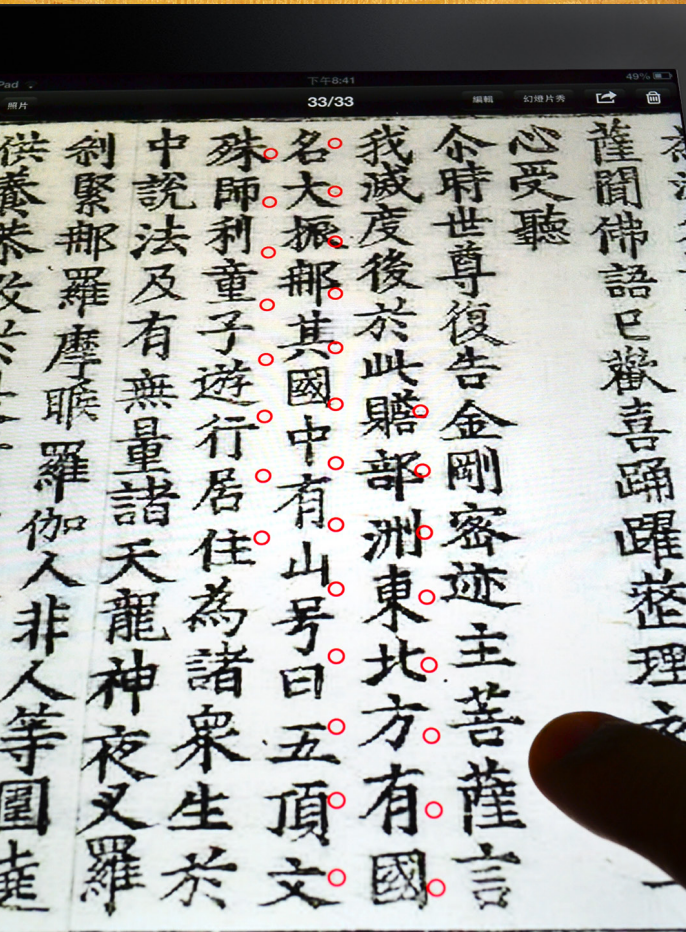 Pad
下午8:41
49%
照片
33/33
編輯
幻燈片秀
薩聞佛語已歡喜踊躍整理
心受聽
尒時世尊復告金剛密迹主菩薩言
我滅度後於此贍部洲東北方有國
名大振那其國中有山号曰五頂文
殊師利童子遊行居住為諸衆生於
中說法及有無量諸天龍神夜叉羅
剎緊那羅摩睺羅伽人非人等圍遶
供養恭敬於